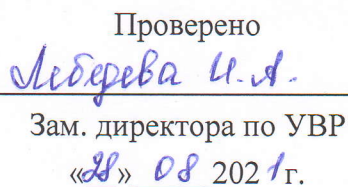 Проверено
Лебедева И.А.
Зам. директора по УВР
«28» 08 2021г.